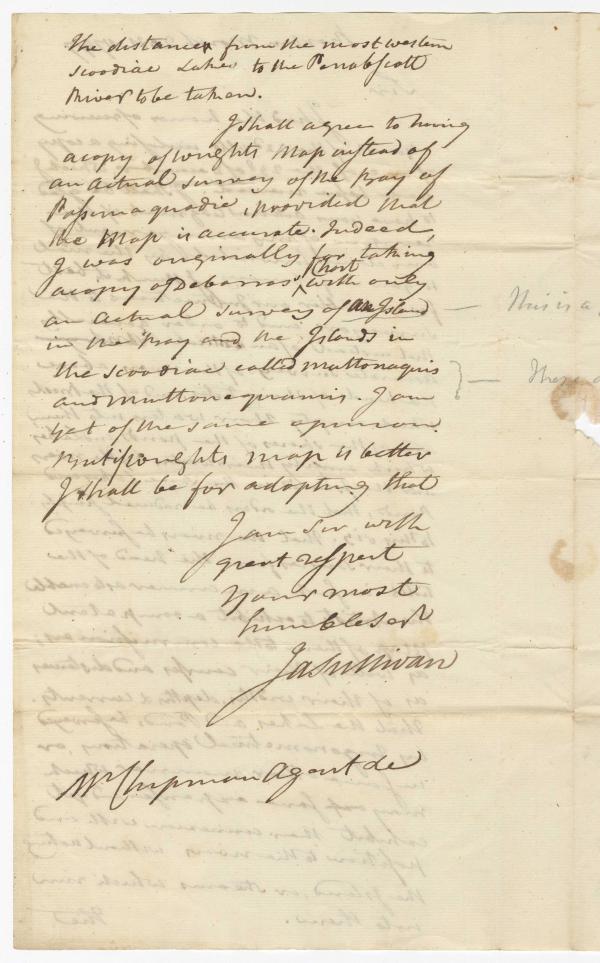 The distance from the most western
scoodiac Lake to the Penobscott
River to be taken.
I shall agree to having
a copy of wrights Map instead of
an actual survey of the Bay of
Passimaquadie, provided that
the Map is accurate. Indeed,
I was originally for taking
a copy of Debarras's Chart with only
an actual survey of an Island
in the Bay and the Islands in
the scoodiac called muttonaquis
and muttonequamis. I am
yet of the same opinion.
But if wrights map is better
I shall be for adopting that
I am sir with
great respect
your most
humble Servt
Ja Sullivan
Mr Chipman Agent &c
This is a
These a